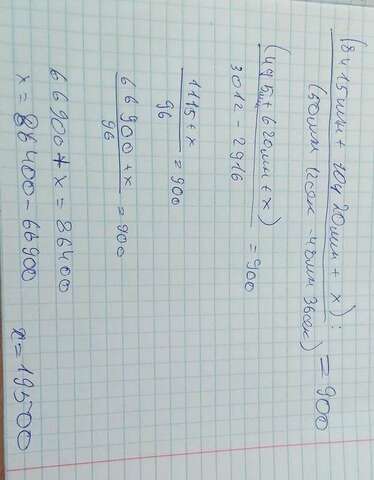 (8ч 15мин + 10ч 20мин + x) :
(50мин 12сек - 48мин 36сек) = 900
(495мин + 620мин + x)
3012 - 2916 = 900
1115 + x
96 = 900
66900 + x
96 = 900
66900 + x = 86400
x = 86400 - 66900 x = 19500